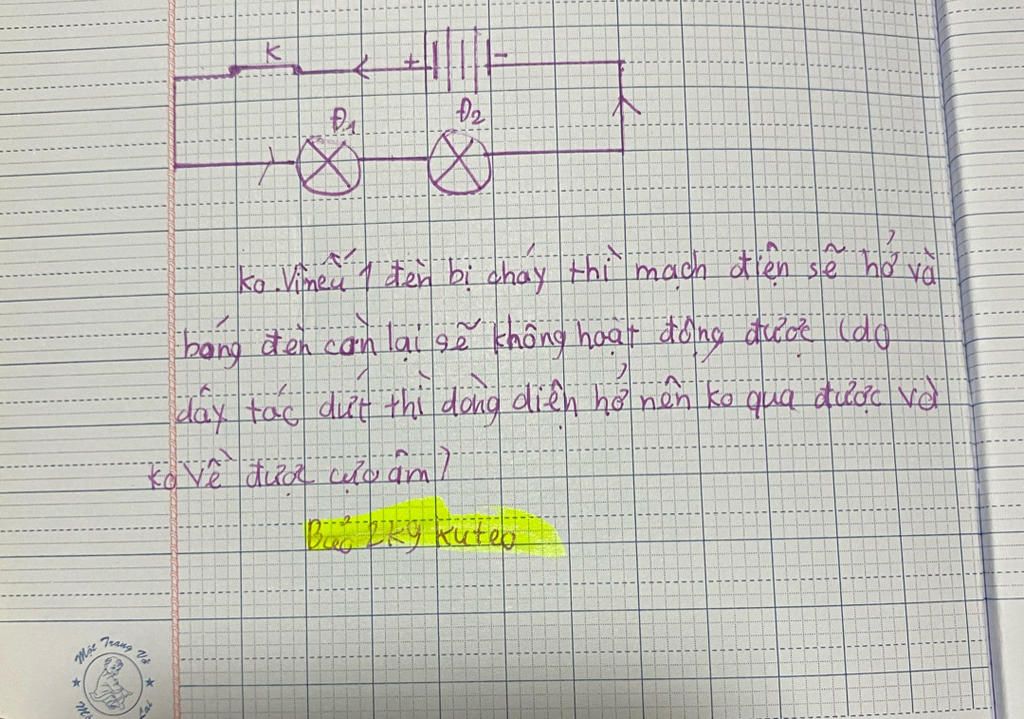 K
+
-
Đ1
Đ2
ko. Vì nếu 1 đèn bị cháy thì mạch điện sẽ hở và
bóng đèn còn lại sẽ không hoạt động được (do
dây tóc đứt thì dòng điện hở nên ko qua được và
ko về được cực âm)
Bảo 2kg kuteo
Mộc Trang Vở